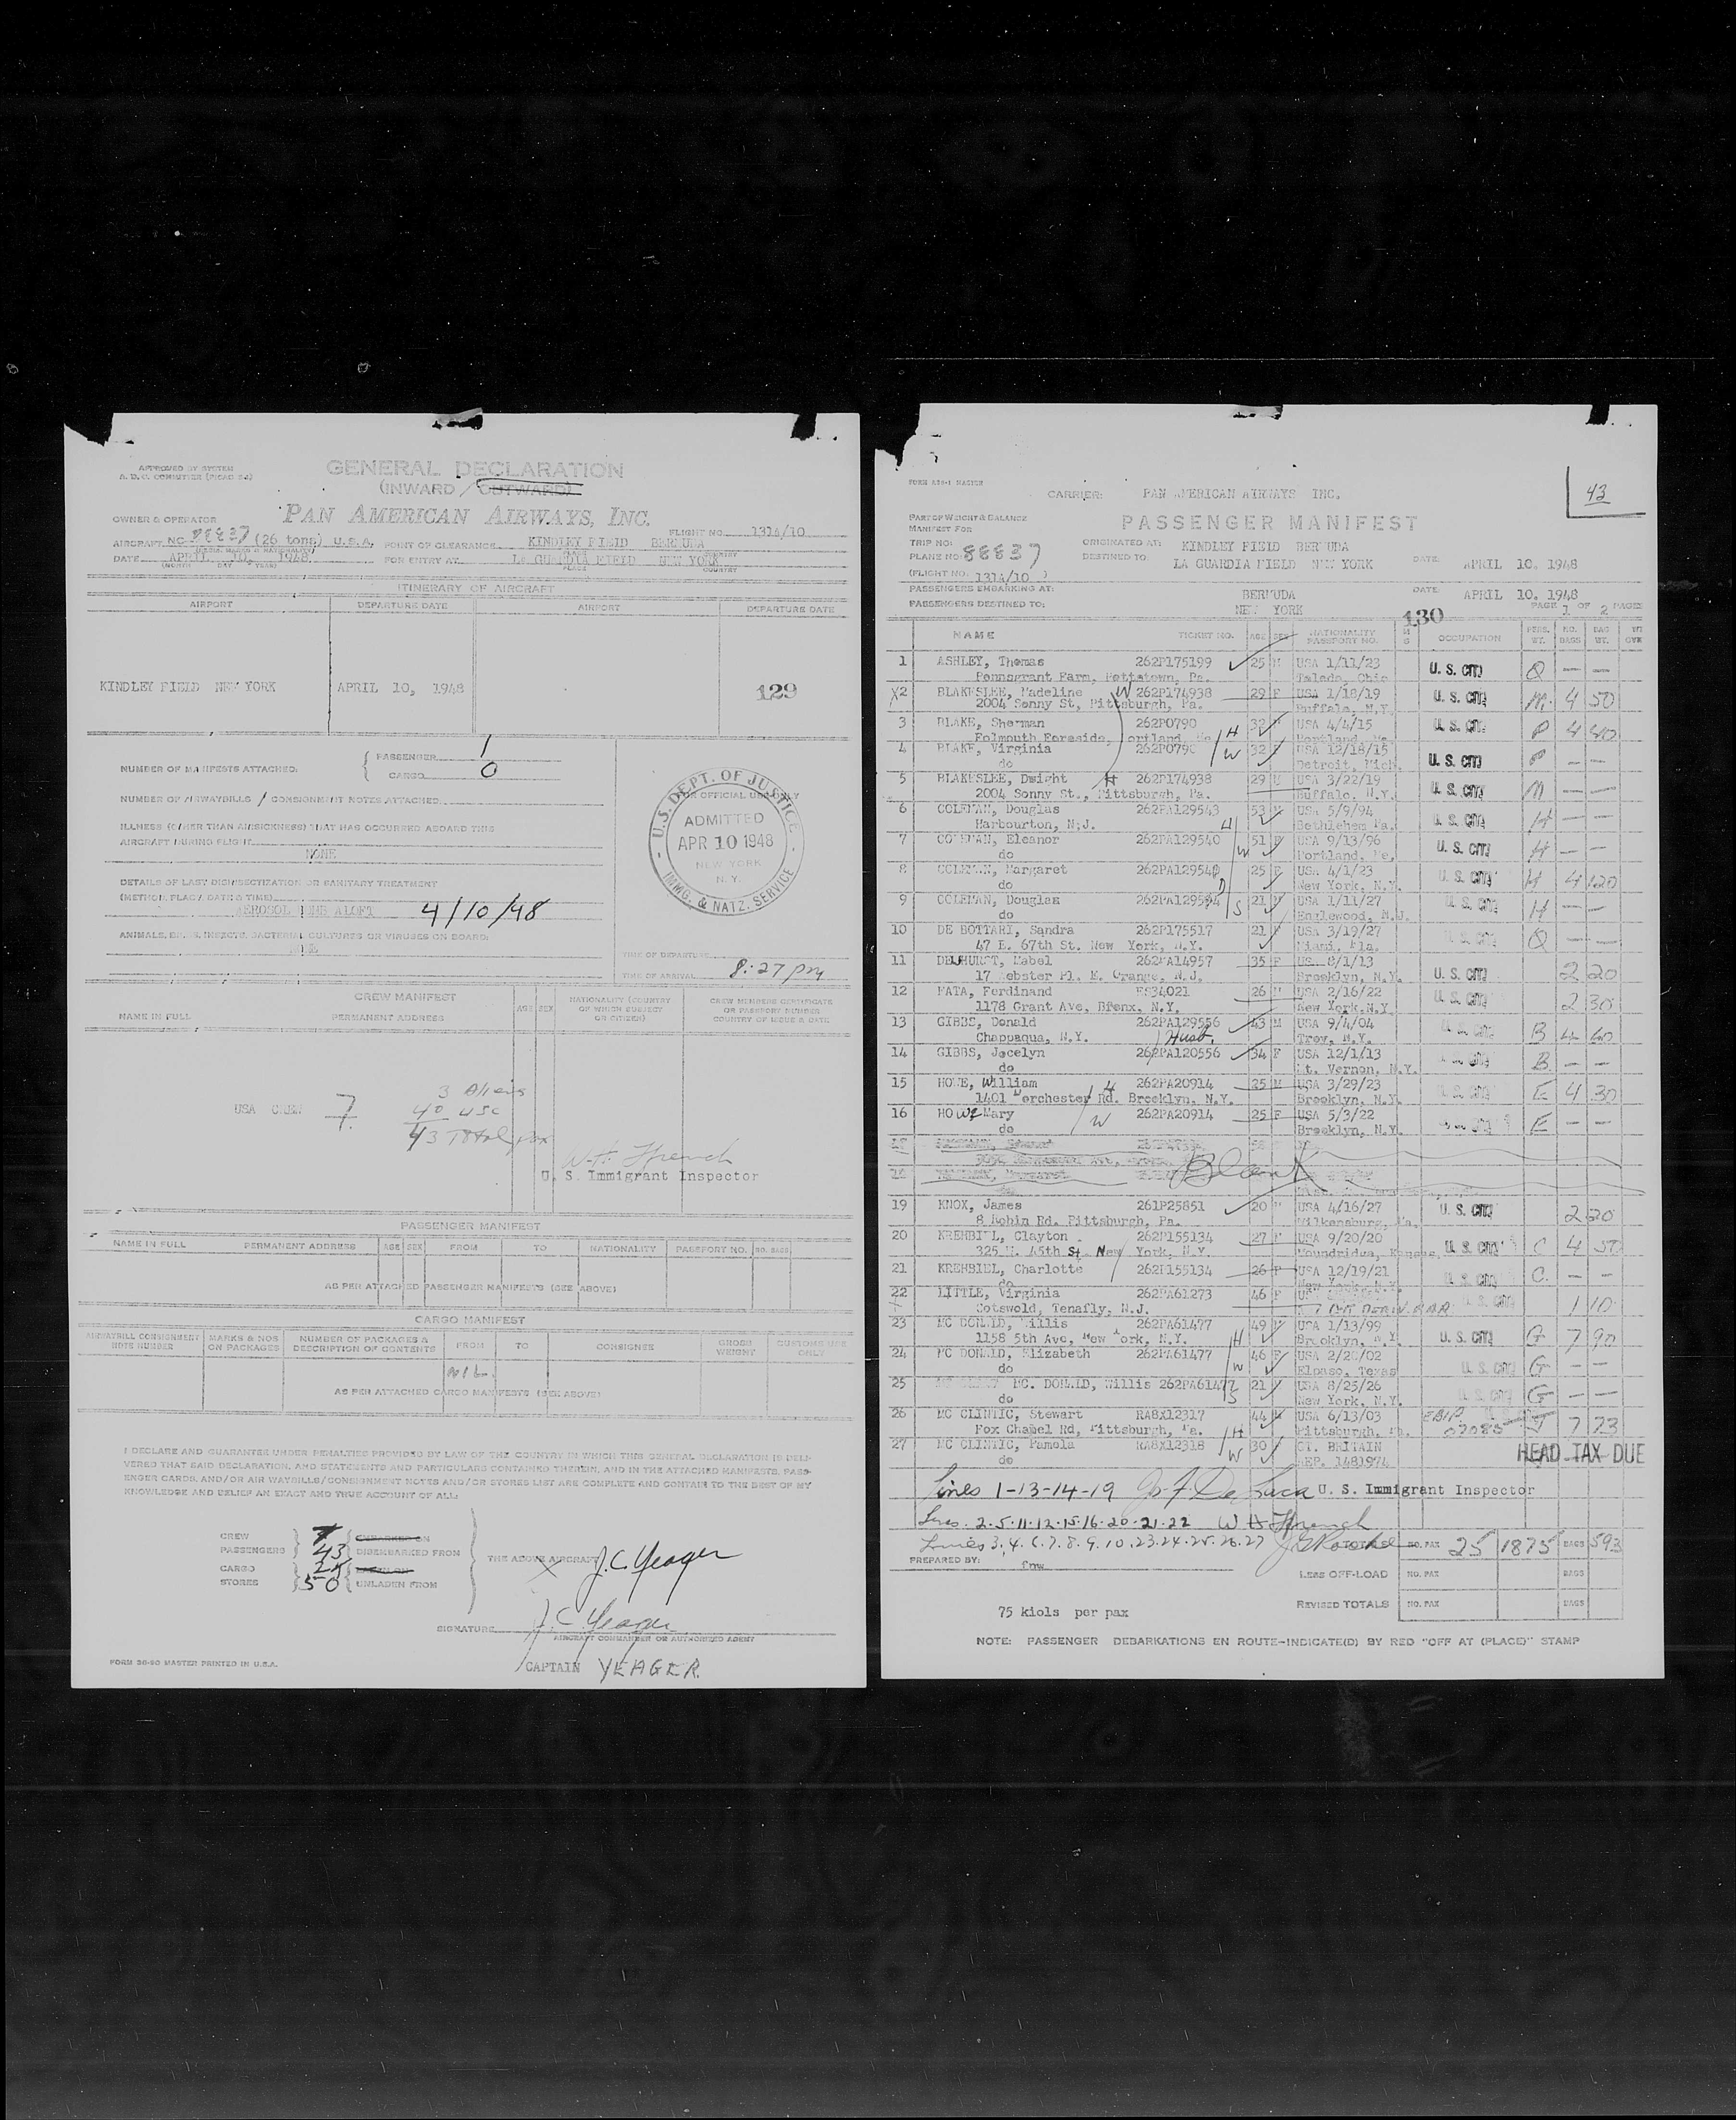 APPROVED BY SYSTEM
GENERAL DECLARATION
(INWARD / OUTWARD)
PAN AMERICAN AIRWAYS, INC.
OWNER & OPERATOR
FLIGHT NO. 131A/10
AIRCRAFT NC 88837 (26 tons) U.S.A. POINT OF CLEARANCE KINDLEY FIELD BERMUDA
DATE APRIL 10, 1948 FOR ENTRY AT LA GUARDIA FIELD NEW YORK
(MONTH DAY YEAR) PLACE COUNTRY
ITINERARY OF AIRCRAFT
AIRPORT DEPARTURE DATE AIRPORT DEPARTURE DATE
KINDLEY FIELD NEW YORK APRIL 10, 1948 129
NUMBER OF MANIFESTS ATTACHED: PASSENGER 1
CARGO 0
NUMBER OF AIRWAYBILLS / CONSIGNMENT NOTES ATTACHED
ILLNESS (OTHER THAN AIRSICKNESS) THAT HAS OCCURRED ABOARD THIS
AIRCRAFT DURING FLIGHT
NONE
DETAILS OF LAST DISINSECTIZATION OR SANITARY TREATMENT
(METHOD, PLACE, DATE & TIME)
AEROSOL BOMB ALOFT 4/10/48
ANIMALS, BIRDS, INSECTS, BACTERIAL CULTURES OR VIRUSES ON BOARD:
NONE
FOR OFFICIAL USE ONLY
U.S. DEPT. OF JUSTICE
ADMITTED
APR 10 1948
NEW YORK
N.Y.
IMMG. & NATZ. SERVICE
TIME OF DEPARTURE
TIME OF ARRIVAL 8:27 pm
CREW MANIFEST
NAME IN FULL PERMANENT ADDRESS AGE SEX NATIONALITY (COUNTRY OF WHICH SUBJECT OR CITIZEN) CREW MEMBERS CERTIFICATE OR PASSPORT NUMBER COUNTRY OF ISSUE & DATE
3 Aliens
USA CREW 7 40 USC
43 Total pax
W.H. Ffrench
U. S. Immigrant Inspector
PASSENGER MANIFEST
NAME IN FULL PERMANENT ADDRESS AGE SEX FROM TO NATIONALITY PASSPORT NO. NO. BAGS
AS PER ATTACHED PASSENGER MANIFESTS (SEE ABOVE)
CARGO MANIFEST
AIRWAYBILL CONSIGNMENT NOTE NUMBER MARKS & NOS ON PACKAGES NUMBER OF PACKAGES & DESCRIPTION OF CONTENTS FROM TO CONSIGNEE GROSS WEIGHT CUSTOMS USE ONLY
NIL
AS PER ATTACHED CARGO MANIFESTS (SEE ABOVE)
I DECLARE AND GUARANTEE UNDER PENALTIES PROVIDED BY LAW OF THE COUNTRY IN WHICH THIS GENERAL DECLARATION IS DELI-
VERED THAT SAID DECLARATION, AND STATEMENTS AND PARTICULARS CONTAINED THEREIN, AND IN THE ATTACHED MANIFESTS, PASS-
ENGER CARDS, AND/OR AIR WAYBILLS/CONSIGNMENT NOTES AND/OR STORES LIST ARE COMPLETE AND CONTAIN TO THE BEST OF MY
KNOWLEDGE AND BELIEF AN EXACT AND TRUE ACCOUNT OF ALL:
CREW 7 EMBARKED ON
PASSENGERS 43 DISEMBARKED FROM
THE ABOVE AIRCRAFT X J.C. Yeager
CARGO
STORES UNLADEN FROM
SIGNATURE J. C. Yeager
AIRCRAFT COMMANDER OR AUTHORIZED AGENT
CAPTAIN YEAGER.
FORM 36-90 MASTER PRINTED IN U.S.A.
43
CARRIER: PAN AMERICAN AIRWAYS INC.
PART OF WEIGHT & BALANCE
MANIFEST FOR
PASSENGER MANIFEST
TRIP NO: ORIGINATED AT: KINDLEY FIELD BERMUDA
PLANE NO: 88837 DESTINED TO: LA GUARDIA FIELD NEW YORK DATE: APRIL 10, 1948
(FLIGHT NO. 131A/10 )
PASSENGERS EMBARKING AT: BERMUDA DATE: APRIL 10, 1948
PASSENGERS DESTINED TO: NEW YORK 130 PAGE 1 OF 2 PAGES
NAME TICKET NO. AGE SEX NATIONALITY PASSPORT NO. OCCUPATION PERS. WT. NO. BAGS BAG WT.
1 ASHLEY, Thomas 262P175199 25 M USA 1/11/23 U. S. CITI Q — —
Pennsgrant Farm, Pottstown, Pa. Toledo, Ohio
X2 BLAKESLEE, Madeline W 262P174938 29 F USA 1/18/19 U. S. CITI M. 4 50
2004 Sonny St, Pittsburgh, Pa. Buffalo, N.Y.
3 BLAKE, Sherman 262P0790 32 USA 4/4/15 U. S. CITI P 4 40
Falmouth Foreside, Portland, Me H Portland, Me
4 BLAKE, Virginia 262P0790 W 32 F USA 12/18/15 U. S. CITI P — —
do Detroit, Mich.
5 BLAKESLEE, Dwight H 262P174938 29 M USA 3/22/19 U. S. CITI M — —
2004 Sonny St., Pittsburgh, Pa. Buffalo, N.Y.
6 COLEMAN, Douglas 262PA129543 53 M USA 5/9/94 U. S. CITI H — —
Harbourton, N.J. H Bethlehem Pa.
7 COLEMAN, Eleanor 262PA129540 W 51 F USA 9/13/96 U. S. CITI H — —
do Portland, Me,
8 COLEMAN, Margaret 262PA129540 25 F USA 4/1/23 U. S. CITI H 4 120
do D New York, N.Y.
9 COLEMAN, Douglas S 21 M USA 1/11/27 U. S. CITI H — —
do Englewood, N.J.
10 DE BOTTARI, Sandra 262P175517 21 F USA 3/19/27 U. S. CITI Q — —
47 E. 67th St. New York, N.Y. Miami, Fla.
11 DEWHURST, Mabel 262PA14957 35 F US 8/1/13 U. S. CITI 2 20
17 Webster Pl. E. Orange, N.J. Brooklyn, N.Y.
12 FATA, Ferdinand 26 M USA 2/16/22 U. S. CITI 2 30
1178 Grant Ave, Bronx, N.Y. New York, N.Y.
13 GIBBS, Donald 262PA129556 43 M USA 9/4/04 U. S. CITI B 4 60
Chappaqua, N.Y. Husb. Troy, N.Y.
14 GIBBS, Jocelyn 262PA120556 34 F USA 12/1/13 B — —
do Mt. Vernon, N.Y.
15 HOWE, William 262PA20914 25 M USA 3/29/23 U. S. CITI E 4 30
1401 Dorchester Rd. Brooklyn, N.Y. H Brooklyn, N.Y.
16 HOWE Mary 262PA20914 25 F USA 5/3/22 E — —
do W Brooklyn, N.Y.
17
Blank
18
19 KNOX, James 261P25851 20 M USA 4/16/27 U. S. CITI 2 20
8 Robin Rd. Pittsburgh, Pa. Wilkensburg, Pa.
20 KREHBIEL, Clayton 262P155134 27 USA 9/20/20 U. S. CITI C 4 50
325 W. 45th St. New York, N.Y. Moundridge, Kansas
21 KREHBIEL, Charlotte 262P155134 26 F USA 12/19/21 U. S. CITI C. — —
do New York, N.Y.
22 LITTLE, Virginia 262PA61273 46 F U. S. CITI 1 10
Cotswold, Tenafly, N.J.
23 MC DONALD, Willis 262PA61477 49 USA 1/13/99 U. S. CITI G 7 90
1158 5th Ave, New York, N.Y. H Brooklyn, N.Y.
24 MC DONALD, Elizabeth 262PA61477 46 F USA 2/28/02 U. S. CITI G — —
do W Elpaso, Texas
25 MC. DONALD, Willis 262PA61477 21 USA 8/25/26 U. S. CITI G — —
do S New York, N.Y.
26 MC CLINTIC, Stewart RA8X12317 44 M USA 6/13/03 7 23
Fox Chapel Rd, Pittsburgh, Pa. H Pittsburgh, Pa.
27 MC CLINTIC, Pamela RA8X12318 W 30 GT. BRITAIN HEAD TAX DUE
do REP. 1481974
Lines 1-13-14-19 U. S. Immigrant Inspector
Lines 2.5.11.12.15.16.20.21.22 W H Ffrench
Lines 3.4.6.7.8.9.10.23.24.25.26.27 NO. PAX 25 1875 BAGS 593
PREPARED BY: fnw
LESS OFF-LOAD NO. PAX BAGS
75 kiols per pax REVISED TOTALS NO. PAX BAGS
NOTE: PASSENGER DEBARKATIONS EN ROUTE-INDICATE(D) BY RED "OFF AT (PLACE)" STAMP